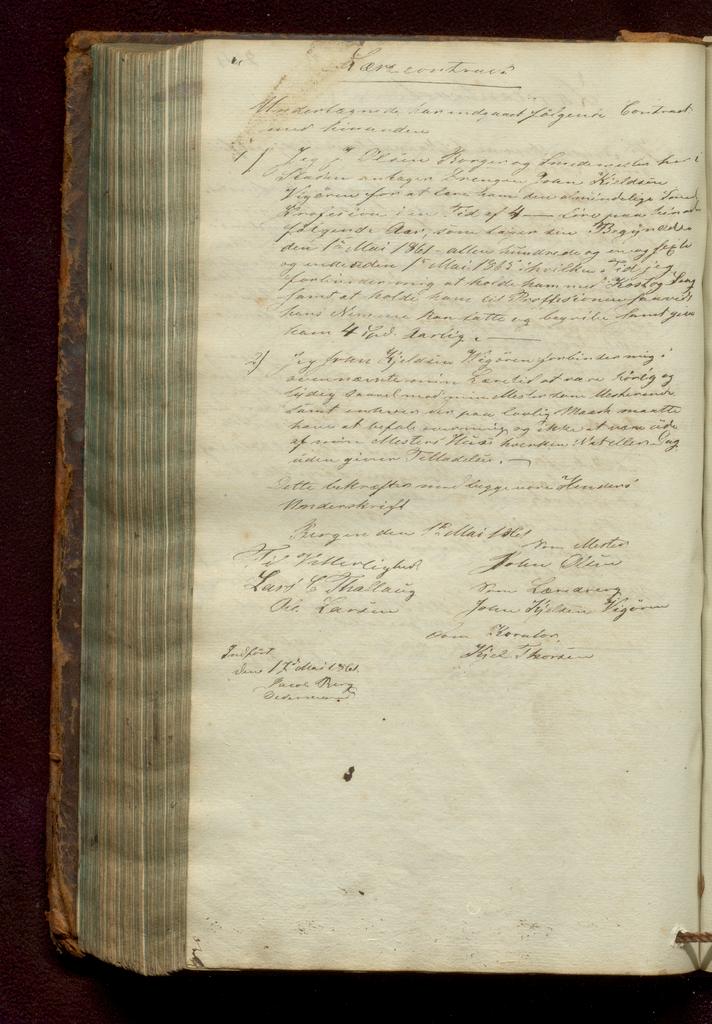 Lærecontract
Undertegnede har indgaaet følgende Contract
med hinanden
1) Jeg J Olsen Borger og Smedemester her i
Staden antager Drengen John Kjeldsen
Vigøren for at lære ham den almindelige Smed
Profesion i en Tid af 4 — fire paa hinanden
følgende Aar, som tager sin Begyndelse
den 1te Mai 1861 – atten hundrede og en og sexti
og endes den 1te Mai 1865 i hvilken Tid jeg
forbinder mig at holde ham med Kost og Seng
samt at holde ham til Professionen saavidt
hans Nemme kan fatte og begribe samt give
ham 4 Spd. Aarlig. —
2) Jeg John Kjeldsen Vigøren forbinder mig i
ovennævnte min Læretid at være hørig og
lydig saavel mod min Mester som Mesterinde
samt enhver der paa lovlig Maade maatte
have at befale over mig og ikke at være ude
af min Mesters Huus hverken Nat eller Dag
uden given Tilladelse. —
Dette bekræftes med begge vore Hænders
Underskrift
Bergen den 1te Mai 1861
Som Mester
Til Vitterlighed John Olsen
Lars C Thallaug Som Læredreng
Ol. Larsen John Kjeldsen Vigøren
Som
Kjel Thorsen
Indført
den 17de Mai 1861
Jacob Berg
Oldermand